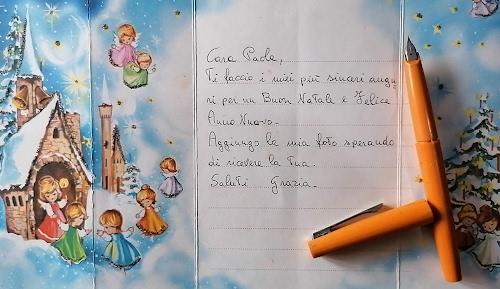 Cara Paola,
Ti faccio i miei più sinceri augu
ri per un Buon Natale e Felice
Anno Nuovo.
Aggiungo la mia foto sperando
di ricevere la Tua.
Saluti Grazia.